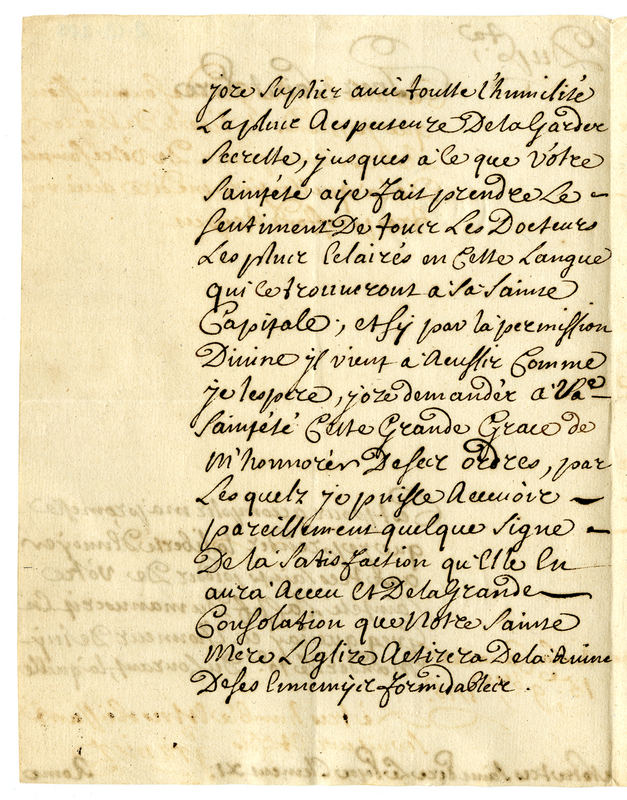 joze suplier avec toutte l'humilité
La pluic Respecteuze De la Garder
Secrette, jusques à ce que Vôtre
Sainteté aije fait prendre Le
Sentiment De touic Les Docteurs
Les pluic Eclairés en Cette Langue
qui ce trouueront à Sa Sainte
Capitale; et sy par la permission
Divine jl vient à Reussir Comme
je lespere, joze demandér a V.re
Sainteté Cette Grande Grace de
M'honnorér De seic ordres, par
Lesquelz je puisse Receuoir
pareillement quelque Signe
De la Satisfaction qu'Elle En
aura Receu Et De la Grande
Consolation que Notre Sainte
Mere L'Eglize Retirera De la Ruine
De ses Ennemijc formidableic.